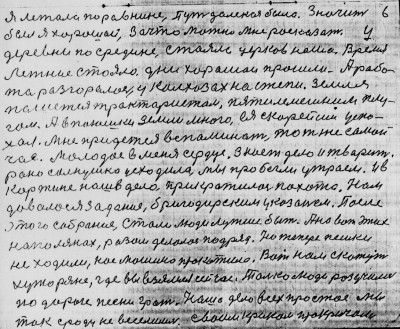 Я летала по равнине, Путь далекой было. Значит 6
был я хорошая, За что можно мне росказат. У
деревни по средине, стояла церков наша. Время
летние стояло. дни хорошаи прошли. А рабо-
та разгоралас, у колхозах на степи. Земля
пашется трактористам, пятилемешным плу-
гам. А в пошики земли много, ея скорейши успо-
хал. Мне придется вспоминат, тот же самой
час. Молодое в меня сердце, Знает дело и творит.
рано солнушко усходила, мы пробегли утрает. Ив
картине наше дело, прикратилас похота. Нам
довалося Задания, бригодирским указанем. После
этого собрания, Стали люди лутше быт. Ана вот этих
на полянах, работ делалос подряд. Но теперь пешки
не ходили, нас машино прокотило. Вот нам скажут
хуторяне, где вы взялис сечас. Толко люди роздушили
по дороге песни грают. Наше дело всех простое мы
так сроду не веселили. своим криком прокричали